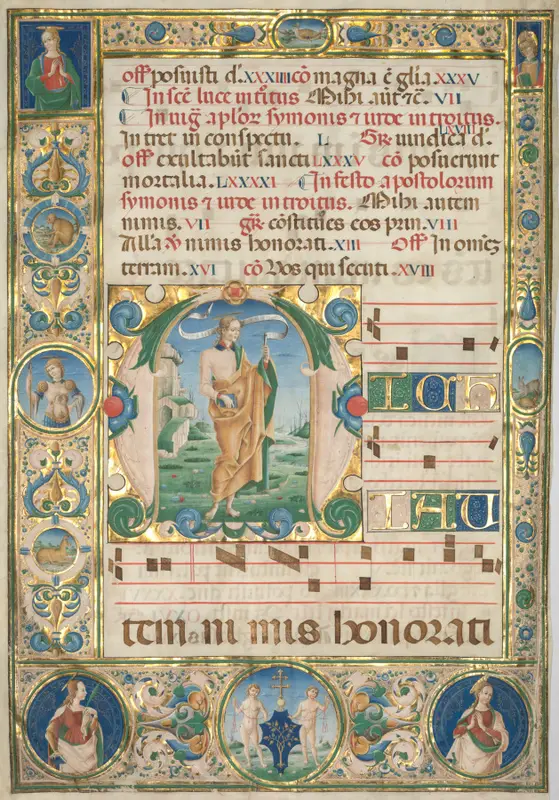 off posuisti d. xxxiiii cō magna ē glia. xxxv
In scē luce in tuitus Mihi aūt zc̄. vii
In uig aplor symonis ⁊ iude introitus.
Intret in conspectu. L Gr. uindica d. Lxviii
off exultabūt sancti Lxxxv cō posuerunt
mortalia. Lxxxxi In festo apostolorum
symonis ⁊ iude introitus. Mihi autem
nimis. vii gr. cōstitues eos prin. viii
Alla ℣ nimis honorati. xiii Off In omēz
terram. xvi cō Vos qui secuti. xviii
MICH
I AU
tem ni mis honorati